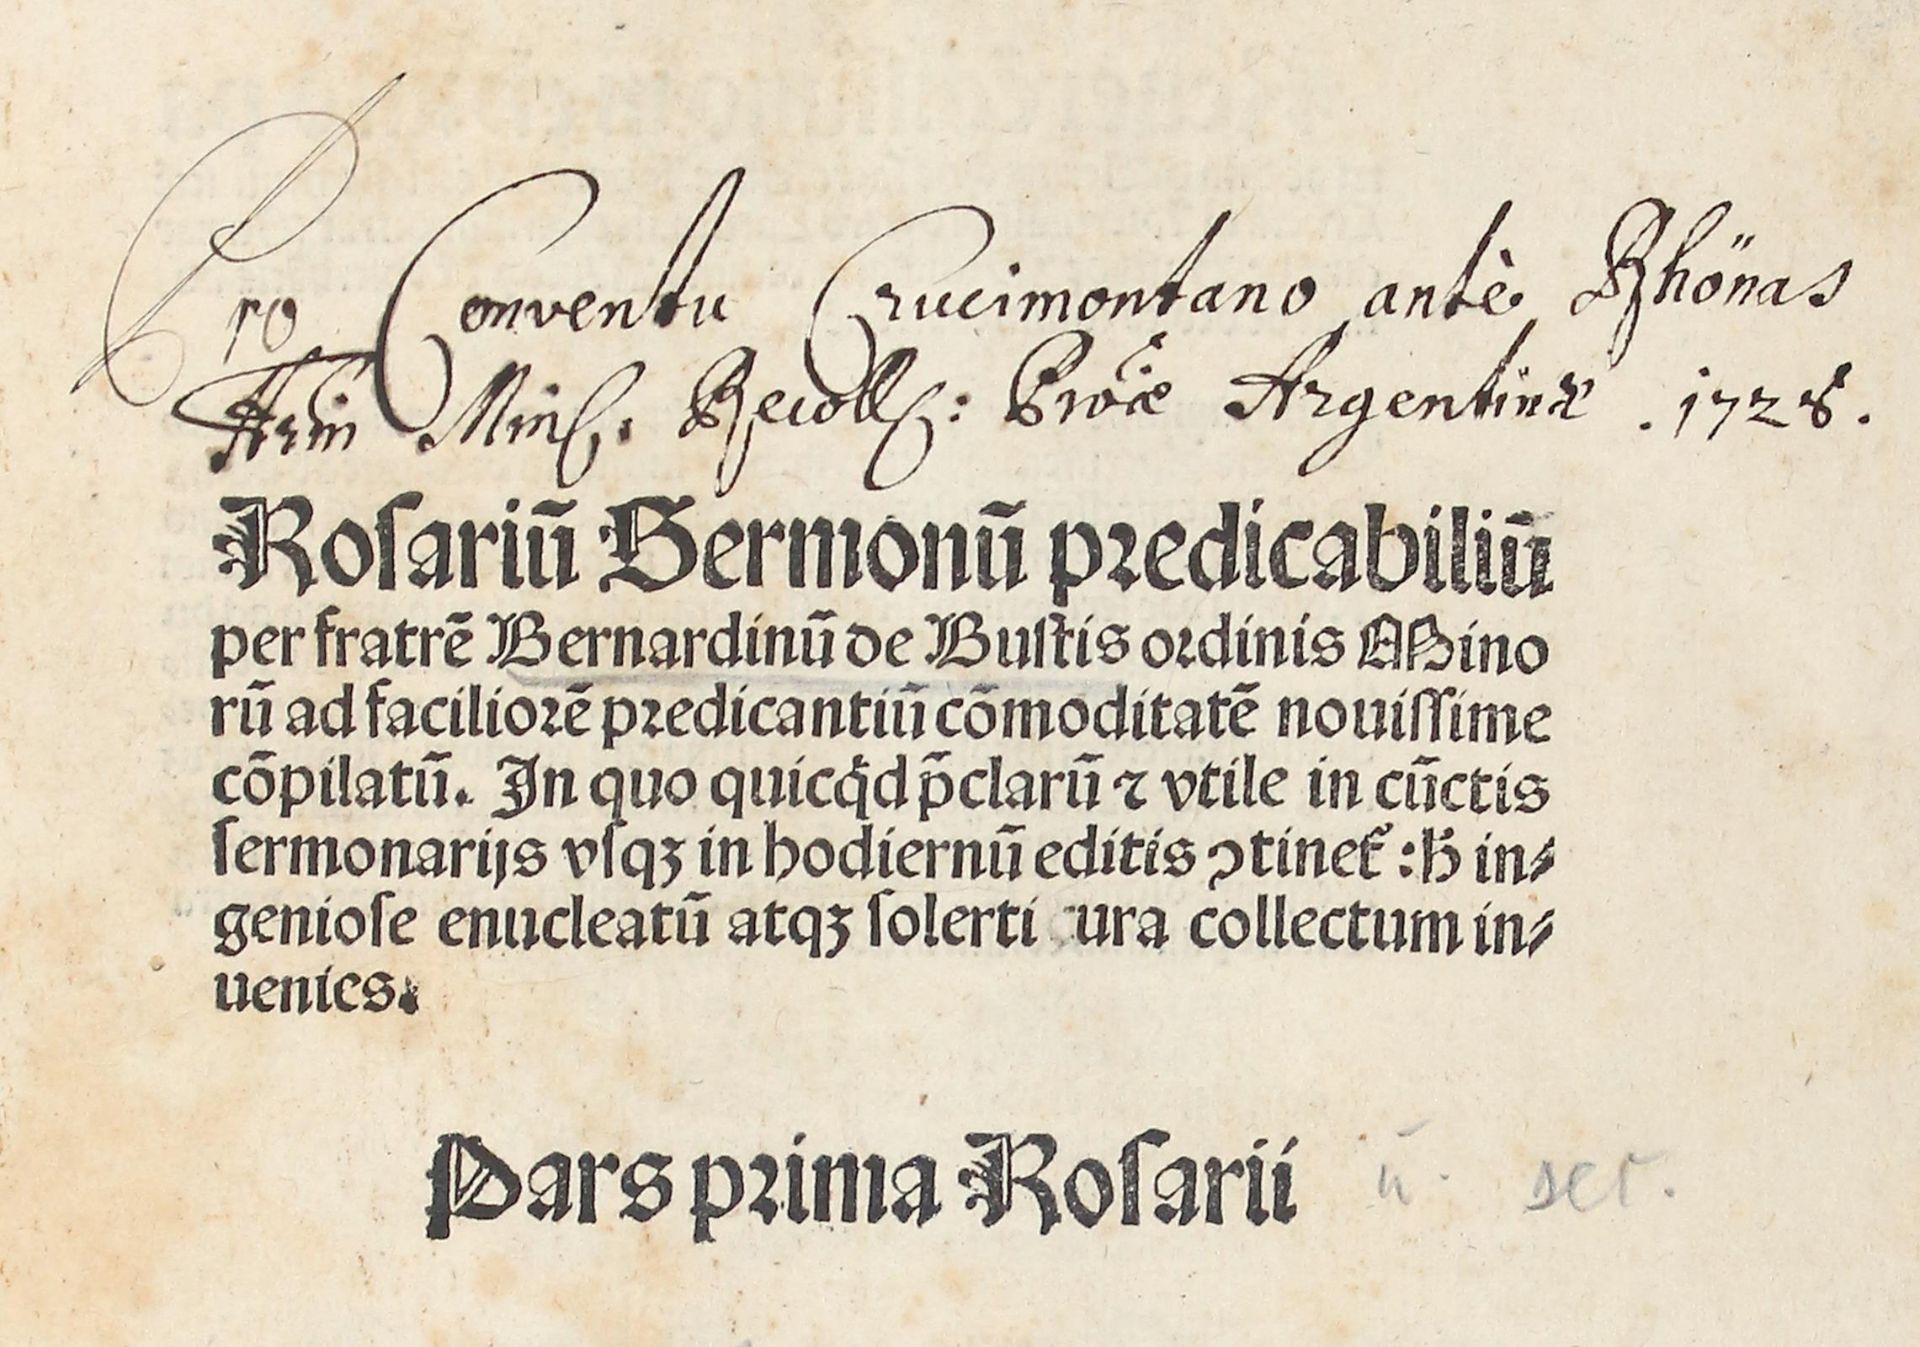 Pro Conventu Crucimontano antè Rhönas
Frm̄ Min. Recoll: Provȃe Argentinæ . 1728.
Roſariū Sermonū predicabiliū
per fratrē Bernardinū de Buſtis ordinis Mino
rū ad faciliorē predicantiū cōmoditatē nouiſſime
cōpilatū. In quo quicq̇d p̄clarū ⁊ vtile in cūctis
ſermonarijs vſqꝫ in hodiernū editis ↄtinet᷑ : h̄ in⸗
genioſe enucleatū atqꝫ ſolerti ura collectum in⸗
uenies.
Pars prima Roſarii